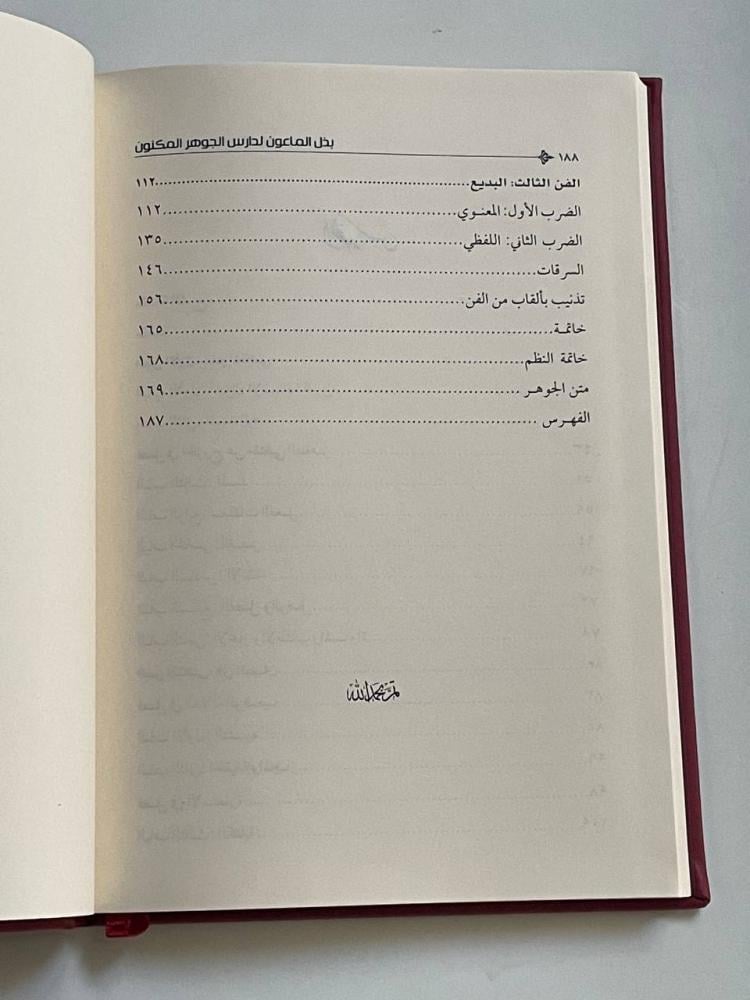 بذل الماعون لدارس الجوهر المكنون
١٨٨
الفن الثالث: البديع................................................١١٢
الضرب الأول: المعنوي................................................١١٢
الضرب الثاني: اللفظي................................................١٣٥
السرقات................................................١٤٦
تذنيب بألقاب من الفن................................................١٥٦
خاتمة................................................١٦٥
خاتمة النظم................................................١٦٨
متن الجوهر................................................١٦٩
الفهرس................................................١٨٧
تم بحمد الله